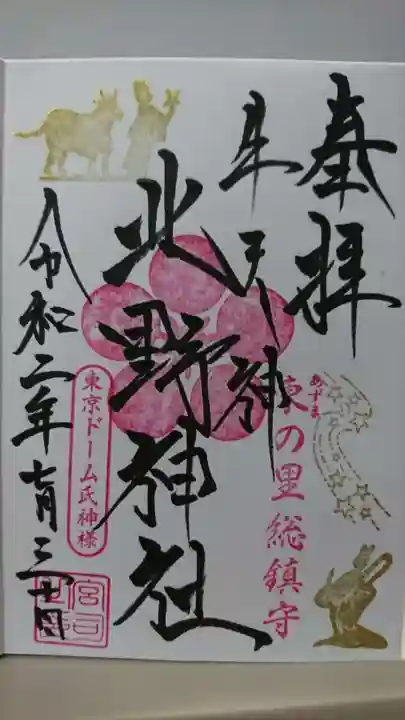 奉拝
牛天神
北野神社
令和二年七月三十日
あずま
東の里総鎮守
東京ドーム氏神様